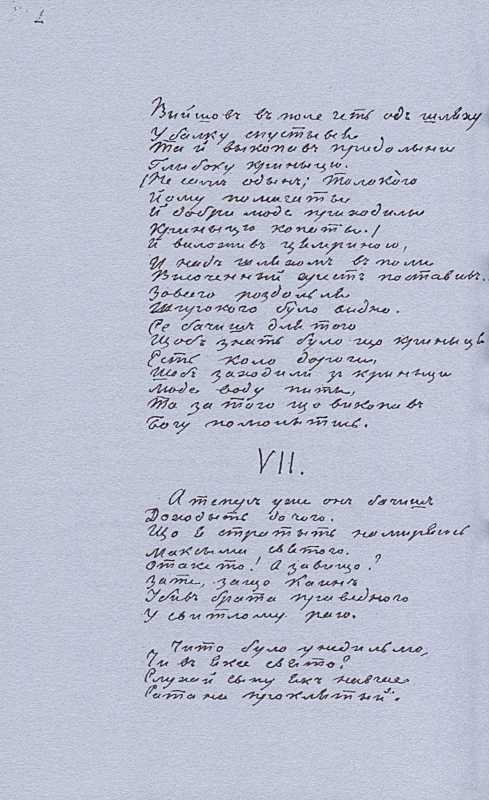 1
Вийшовъ въ поле геть одъ шляху
У балку спустывся
Та й выкопавъ придолыни
Глибоку крыныцю.
(Не самъ одынъ; толокою
Йому помагаты
И добри люде приходилы
Крыныцю копаты.)
И виложивъ цямриною,
И надъ шляхомъ въ поли
Височенный хрестъ поставивъ.
Зовсего роздольля
Широкого було видно.
Се бачишъ для того
Щобъ знать було що крыныця
Есть коло дороги,
Щобъ заходили зъ крыныци
Люде воду питы,
Та за того що викопавъ
Богу помолытись.
VII.
А теперъ уже онъ бачишъ
Доходыть до чого.
Що й стратыть намирялысь
Максыма святого.
Отаке то! А завищо?
Зате, защо Каинъ
Убивъ брата праведного
У свитлому раю.
„ Чито було у недильлю,
Чи въ яке свято?
Слухай сыну якъ навчае
Сатана проклятый".